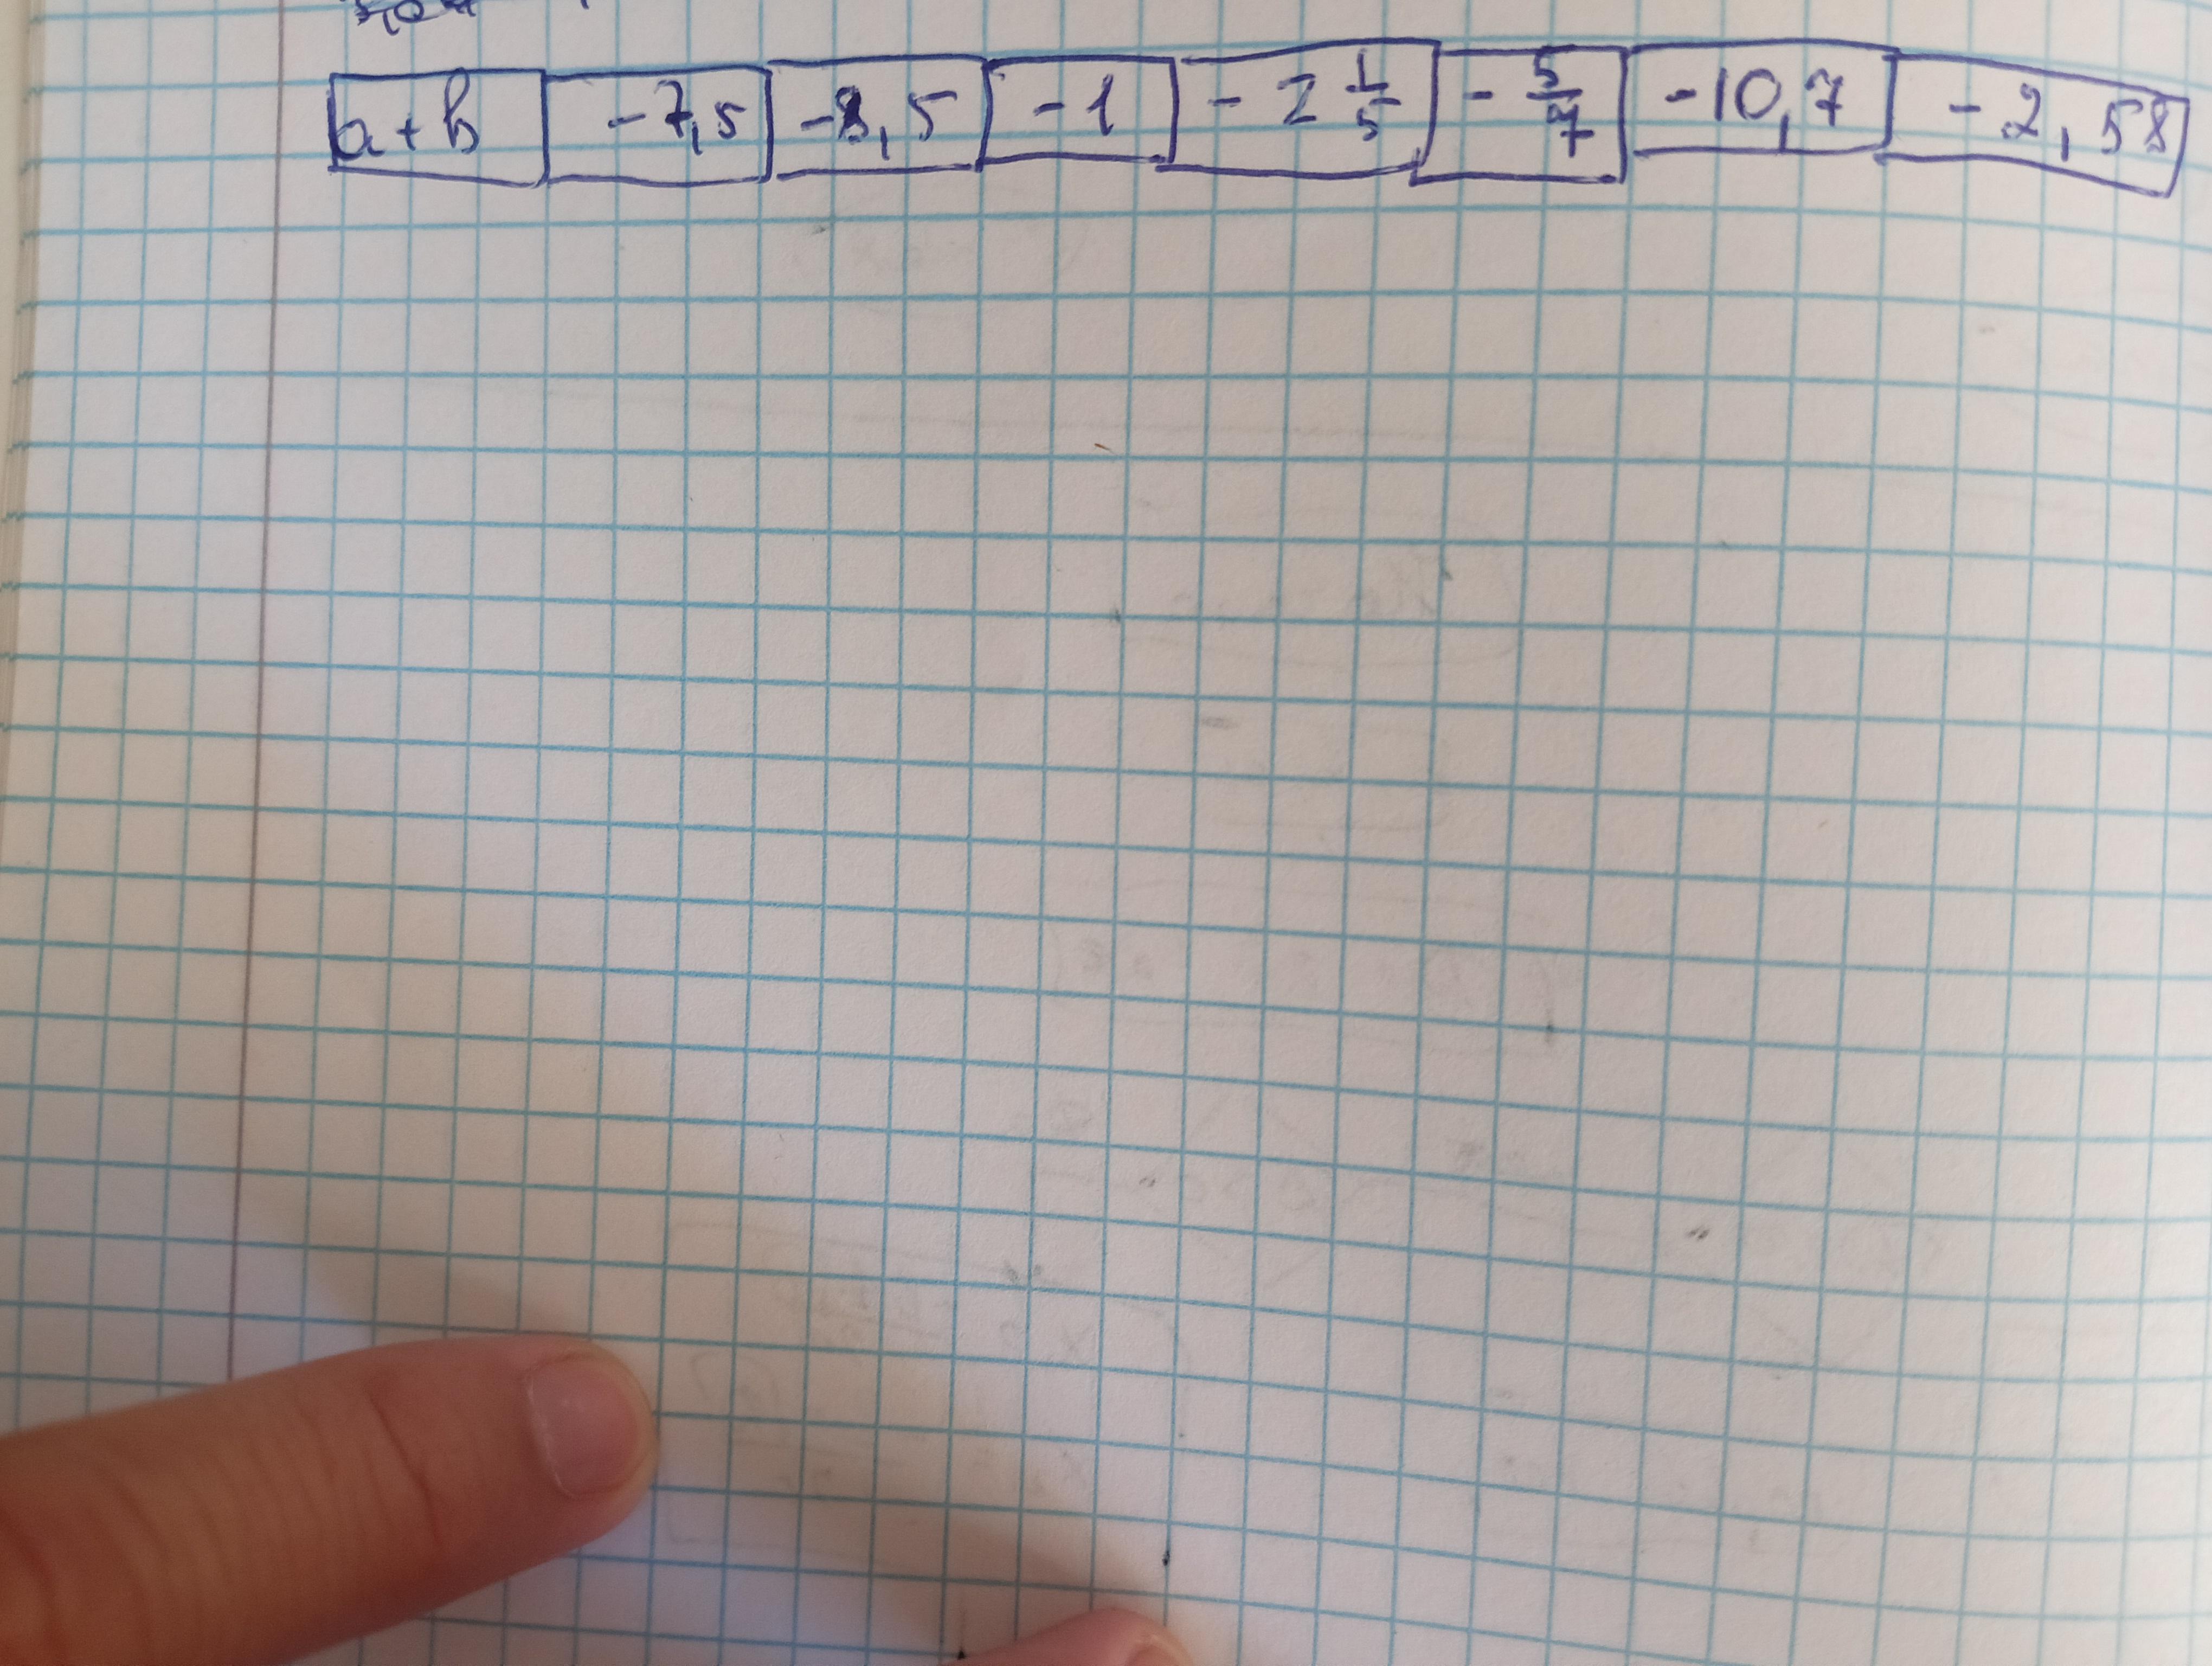 a + b -7,5 -8,5 -1 -2 1/5 -5/7 -10,7 -2,58